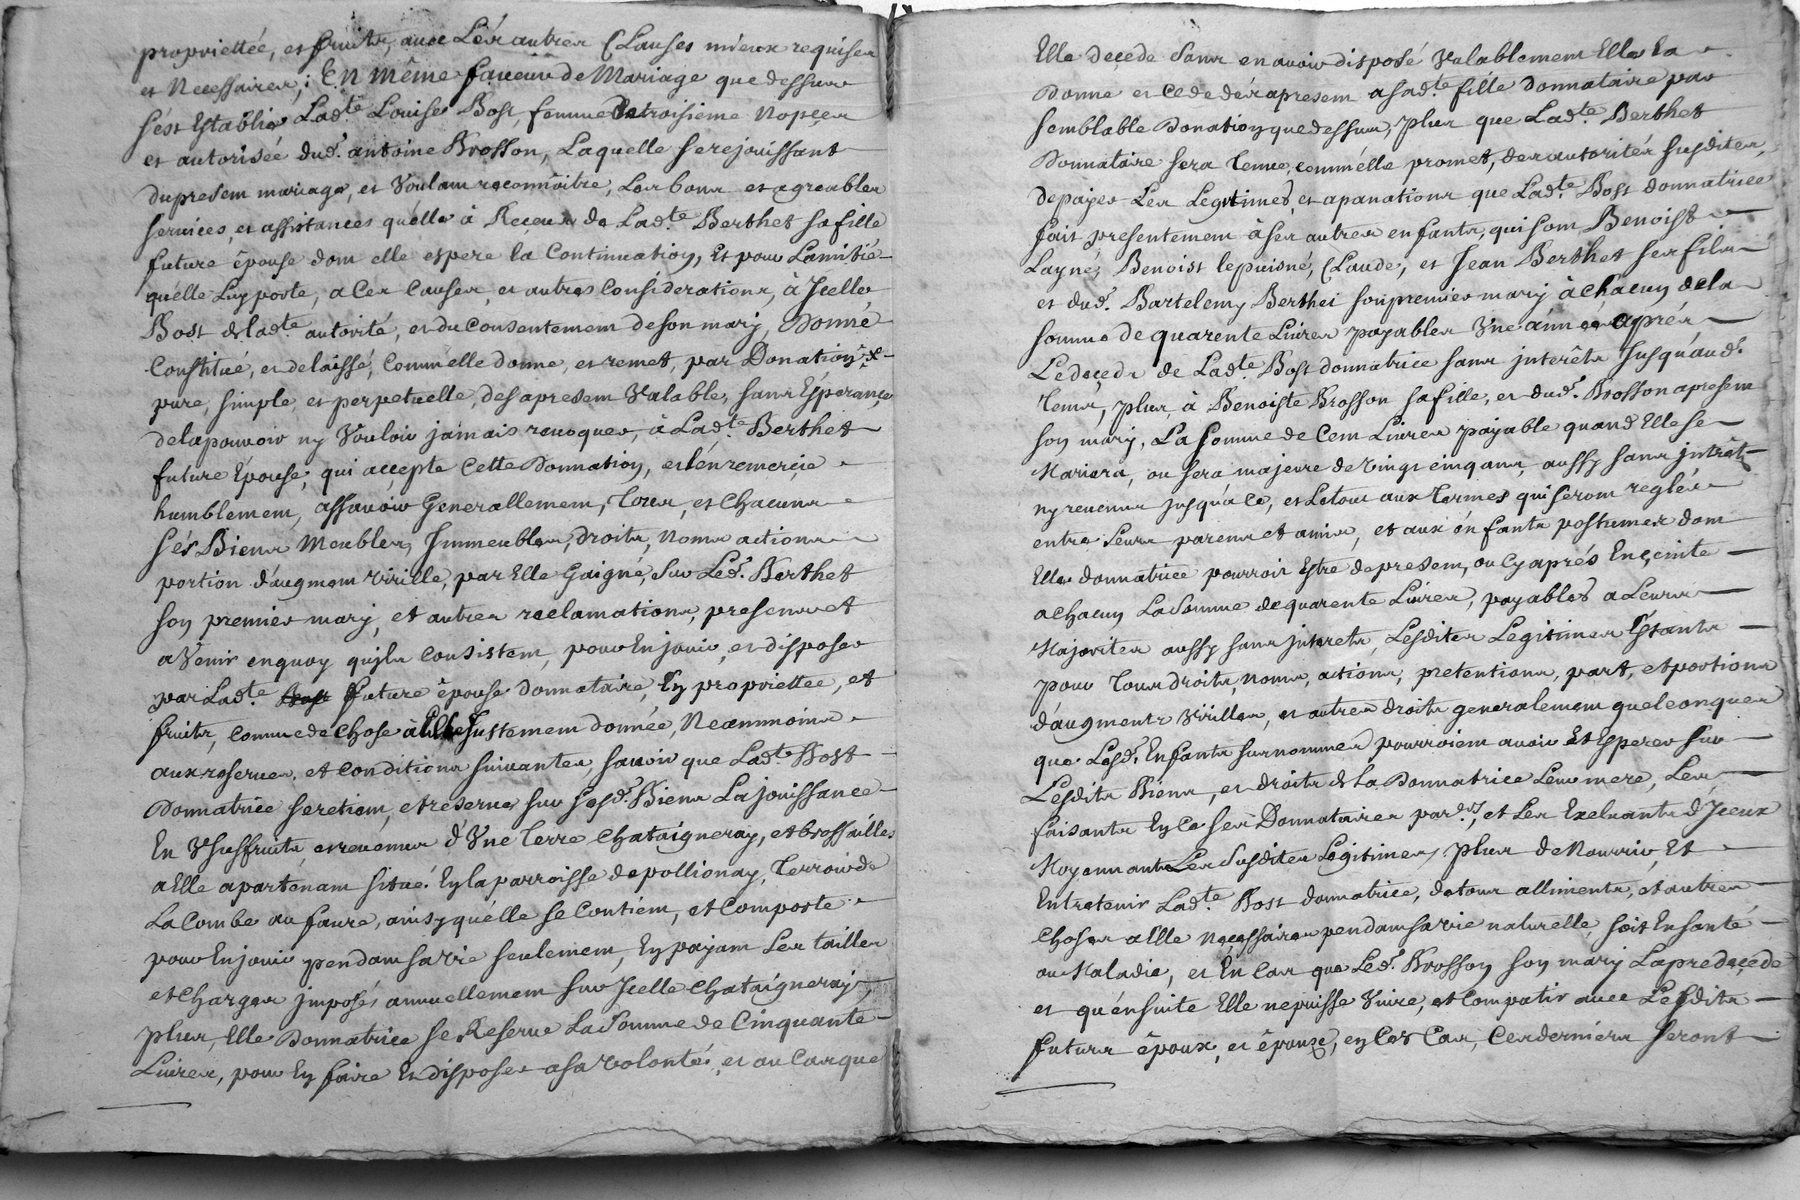 propriettée, et fruits, avec Lés autres Clauses mieux requises
et Necessaires, ; En même faveur de Mariage que dessus
s'est Establie Lad.te Louise Bost femme En troisieme Nopces
et autorisée dud. antoine Brosson, Laquelle se rejouissant
du present mariage, et Voulant reconnoitre, Les bons et agreables
services, et assistances quélle à Reçeu de Lad.te Berthet sa fille
future épouse dont elle espere la Continuation, Et pour Lamitié
quélle Luy porte, a Ces Causes, et autres Considerations, à Jcelle
Bost de lad.te autorité, et du Consentement de son mary, Donné
Constitué, et delaissé, Comme elle donne, et remet, par Donation
pure, simple, et perpetuelle, des apresent Valable, sans Esperance
de la pouvoir ny Vouloir jamais revoquer, à Lad.te Berthet
future Epouse, qui accepte Cette Donnation, et l'en remerçie
humblement, assavoir Generallement, Tous, et Chacuns
sés Biens Meubles, Jmmeubles, droits, noms actions
portion d'augment Virille, par Elle Gaigné, sur Led. Berthet
son premier mary, et autres reclamations, presents et
a Venir en quoy quils Consistent, pour En jouir, et disposer
par Lad.te future épouse donnataire, En propriettée, et
fruits, comme de Chose à Elle Justement donnée, Neammoins
aux reserves, et Conditions suivantes, savoir que Lad.te Bost
Donnatrice se retient, et reserve sur sesd. Biens La jouissance
En Vsuffruits, et revenus d'Vne Terre Chataigneray, et brossailles
a Elle apartenant situé En la parroisse de pollionay, Terroir de
La Combe au faure, ainsy quélle se Contient, et Comporte
pour En jouir pendant sa Vie seulement, En payant Les tailles
et Charges jmposés annuellement sur Jcelle Chataigneray,
plus, Elle Donnatrice se Reserve La Somme de Cinquante
Livres, pour En faire Et disposer a sa Volonté, et au Cas que
Elle deçede sans en avoir disposé Valablement Elle La
Donne et Cede dés apresent a sad.te fille Donnataire par
semblable Donation que dessus, plus que Lad.te Berthet
Donnataire sera Tenue, comme élle promet, des autorités susdites,
de payer Les Legitimes, et apanations que Lad.te Bost donnatrice
fait presentement à ses autres enfants, qui sont Benoist
Laynés, Benoist le puisné, Claude, et Jean Berthet ses fils
et dud. Bartelemy Berthet son premier mary à Chacun de la
somme de quarente Livres payables Vne année aprés
Le deçeds de Lad.te Bost donnatrice sans jnterêts Jusqu'aud.
Tems, plus, à Benoiste Brosson sa fille, et dud. Brosson apresent
son mary, La somme de Cent Livres payable quand Elle se
Mariera, ou sera majeure de vingt cinq ans, aussy sans jnterêt
ny revenus jusqu'a Ce, et Le tout aux Termes qui seront reglés
entre Leurs parents et amis, et aux énfants postumes dont
Elle donnatrice pourroit Estre de present, ou Cy aprés Enceinte
a Chacun La Somme de quarente Livres, payables a Leurs
Majorites aussy sans jnterets, Lesdites Legitimes Estants
pour Tous droits, noms, actions, pretentions, part, et portions
d'augments Virilles, et autres droits generalement quelconques
que Lesd. Enfants surnommes pourroient avoir Et Esperer sur
Lesdits Biens, et droits de la Donnatrice Leur mere, Les
faisants En Ce ses Donnataires par.ers, et Les Excluants d'Jceux
Moyennants Les Susdites Legitimes, plus de Nourrir, Et
Entretenir Lad.te Bost donnatrice, de tous alliments, et autres
Choses a Elle neçessaires pendant sa Vie naturelle, soit En santé
ou Maladie, et En Cas que Led. Brosson son mary La predeçede
et qu'ensuite Elle ne puisse Vivre, et Compatir avec Lesdits
futurs époux, et épouse, en Ces Cas, Ces derniers seront